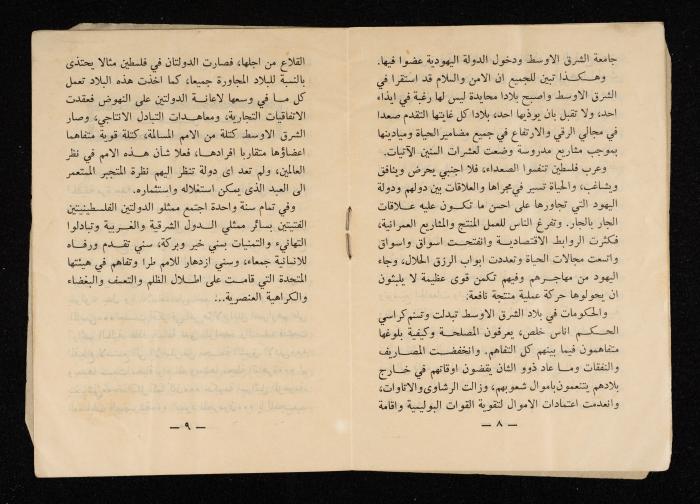 جامعة الشرق الاوسط ودخول الدولة اليهودية عضوا فيها.
وهكذا تبين للجميع ان الامن والسلام قد استقرا في
الشرق الاوسط واصبح بلادا محايدة ليس لها رغبة في ايذاء
احد، ولا تقبل بان يوذيها احد، بلادا كل غايتها التقدم صعدا
في مجالي الرقي والارتفاع في جميع مضامير الحياة وميادينها
بموجب مشاريع مدروسة وضعت لعشرات السنين الآتيات.
وعرب فلسطين تنفسوا الصعداء، فلا اجنبي يحرض وينافق
ويشاغب، والحياة تسير في مجراها والعلاقات بين دولهم ودولة
اليهود التي تجاورها على احسن ما تكون عليه علاقات
الجار بالجار. وتفرغ الناس للعمل المنتج والمشاريع العمرانية،
فكثرت الروابط الاقتصادية وانفتحت اسواق واسواق
واتسعت مجالات الحياة وتعددت ابواب الرزق الحلال، وجاء
اليهود من مهاجرهم وفيهم تكمن قوى عظيمة لا يلبثون
ان يحولوها حركة عملية منتجة نافعة:
والحكومات في بلاد الشرق الاوسط تبدلت وتسنم كراسي
الحكم اناس خلص، يعرفون المصلحة وكيفية بلوغها
متفاهمون فيما بينهم كل التفاهم. وانخفضت المصاريف
والنفقات وما عاد ذوو الشان يقضون اوقاتهم في خارج
بلادهم يتنعمون باموال شعوبهم، وزالت الرشاوى والاتاوات،
وانعدمت اعتمادات الاموال لتقوية القوات البوليسية واقامة
— ٨ —
القلاع من اجلها، فصارت الدولتان في فلسطين مثالا يحتذى
بالنسبة للبلاد المجاورة جميعا، كما اخذت هذه البلاد تعمل
كل ما في وسعها لاعانة الدولتين على النهوض فعقدت
الاتفاقيات التجارية، ومعاهدات التبادل الانتاجي، وصار
الشرق الاوسط كتلة من الامم المسالمة، كتلة قوية متفاهما
اعضاؤها متقاربا افرادها، فعلا شأن هذه الامم في نظر
العالمين، ولم تعد اى دولة تنظر اليهم نظرة المتجبر المستعمر
الى العبد الذى يمكن استغلاله واستثماره.
وفي تمام سنة واحدة اجتمع ممثلو الدولتين الفلسطينيتين
الفتيتين بسائر ممثلي الدول الشرقية والغربية وتبادلوا
التهانىء والتمنيات بسني خير وبركة، سني تقدم ورفاه
للانسانية جمعاء، سني ازدهار للامم طرا وتفاهم في هيئتها
المتحدة التي قامت على اطلال الظلم والتعسف والبغضاء
والكراهية العنصرية..:
— ٩ —